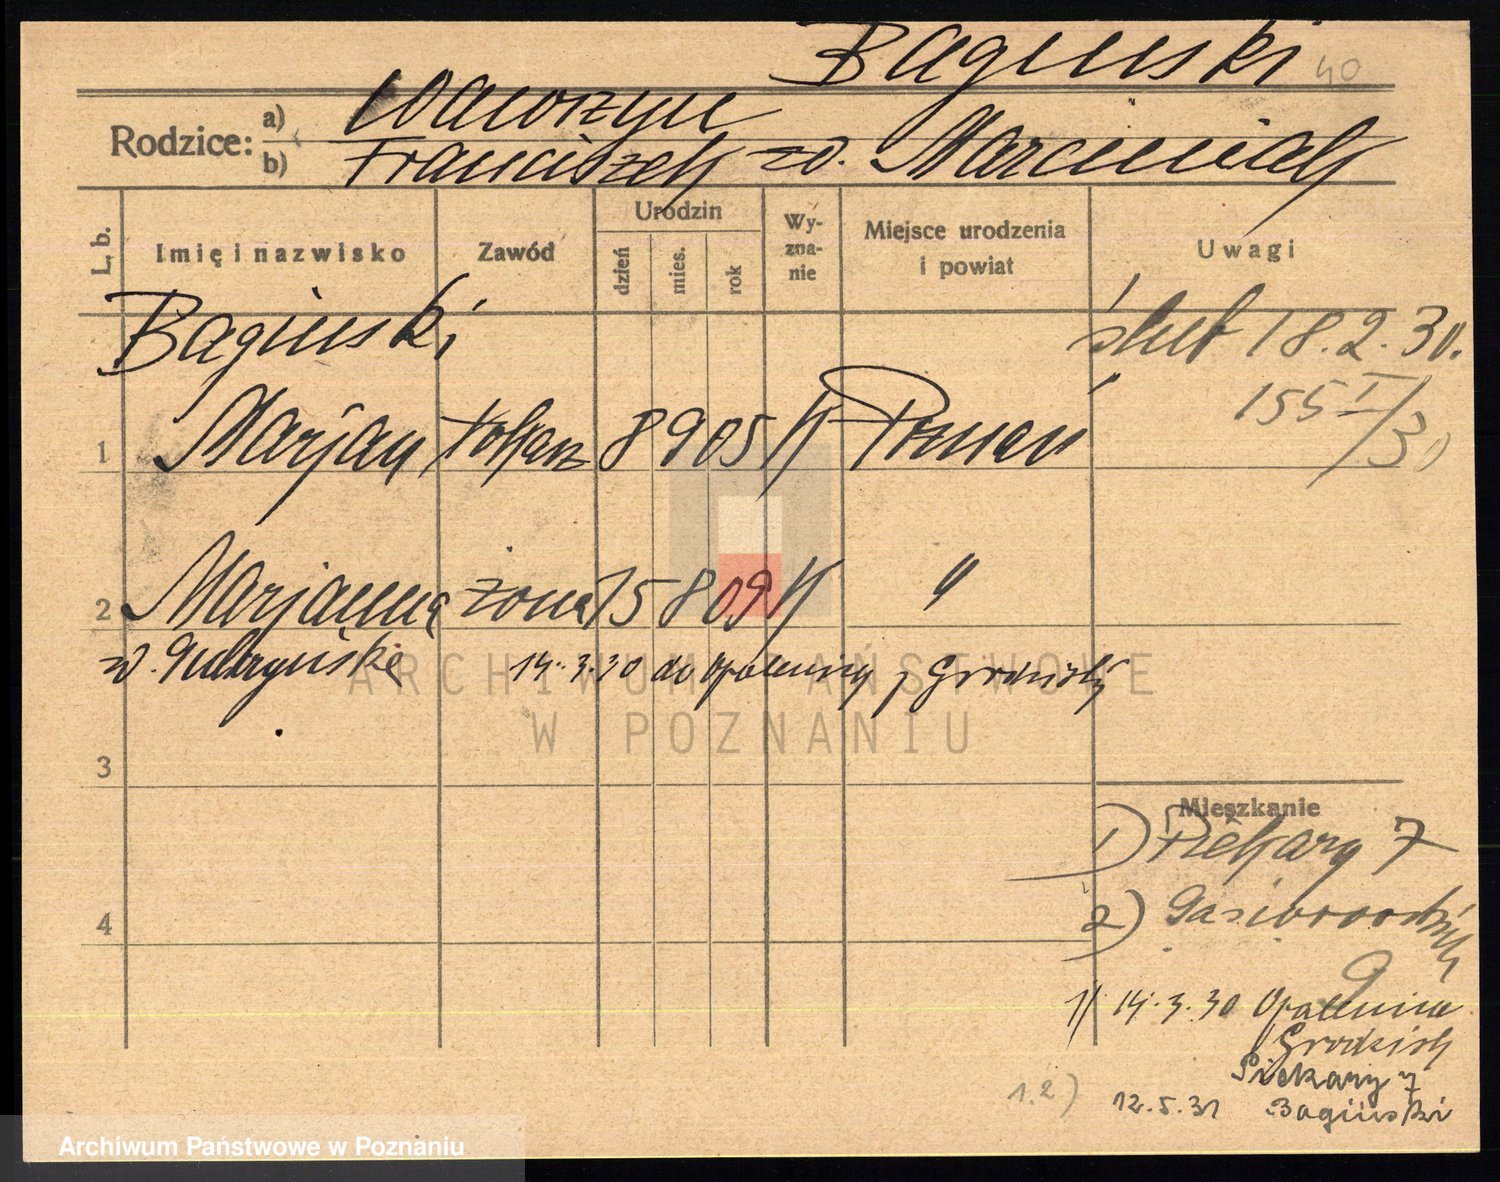 Bagiński 40
Rodzice: a) Wawrzyn
b) Franciszek zd. Marciniak
L. b. Imię i nazwisko Zawód Urodzin dzień mies. rok Wyznanie Miejsce urodzenia i powiat Uwagi
Bagiński
ślub 18.2.30.
155 I/30
1 Marjan tokarz 8 9 05 K Poznań
2 Marjanna żona 15 8 09 K "
14.3.30 do Opalenicy, Grodzisk
ARCHIWUM PAŃSTWOWE
W POZNANIU
3
Mieszkanie
1) Piekary 7
4
2) 9
1/ 14.3.30 Opalenica
Grodzisk
Piekary 7
1.2) 12.5.31 Bagiński
Archiwum Państwowe w Poznaniu